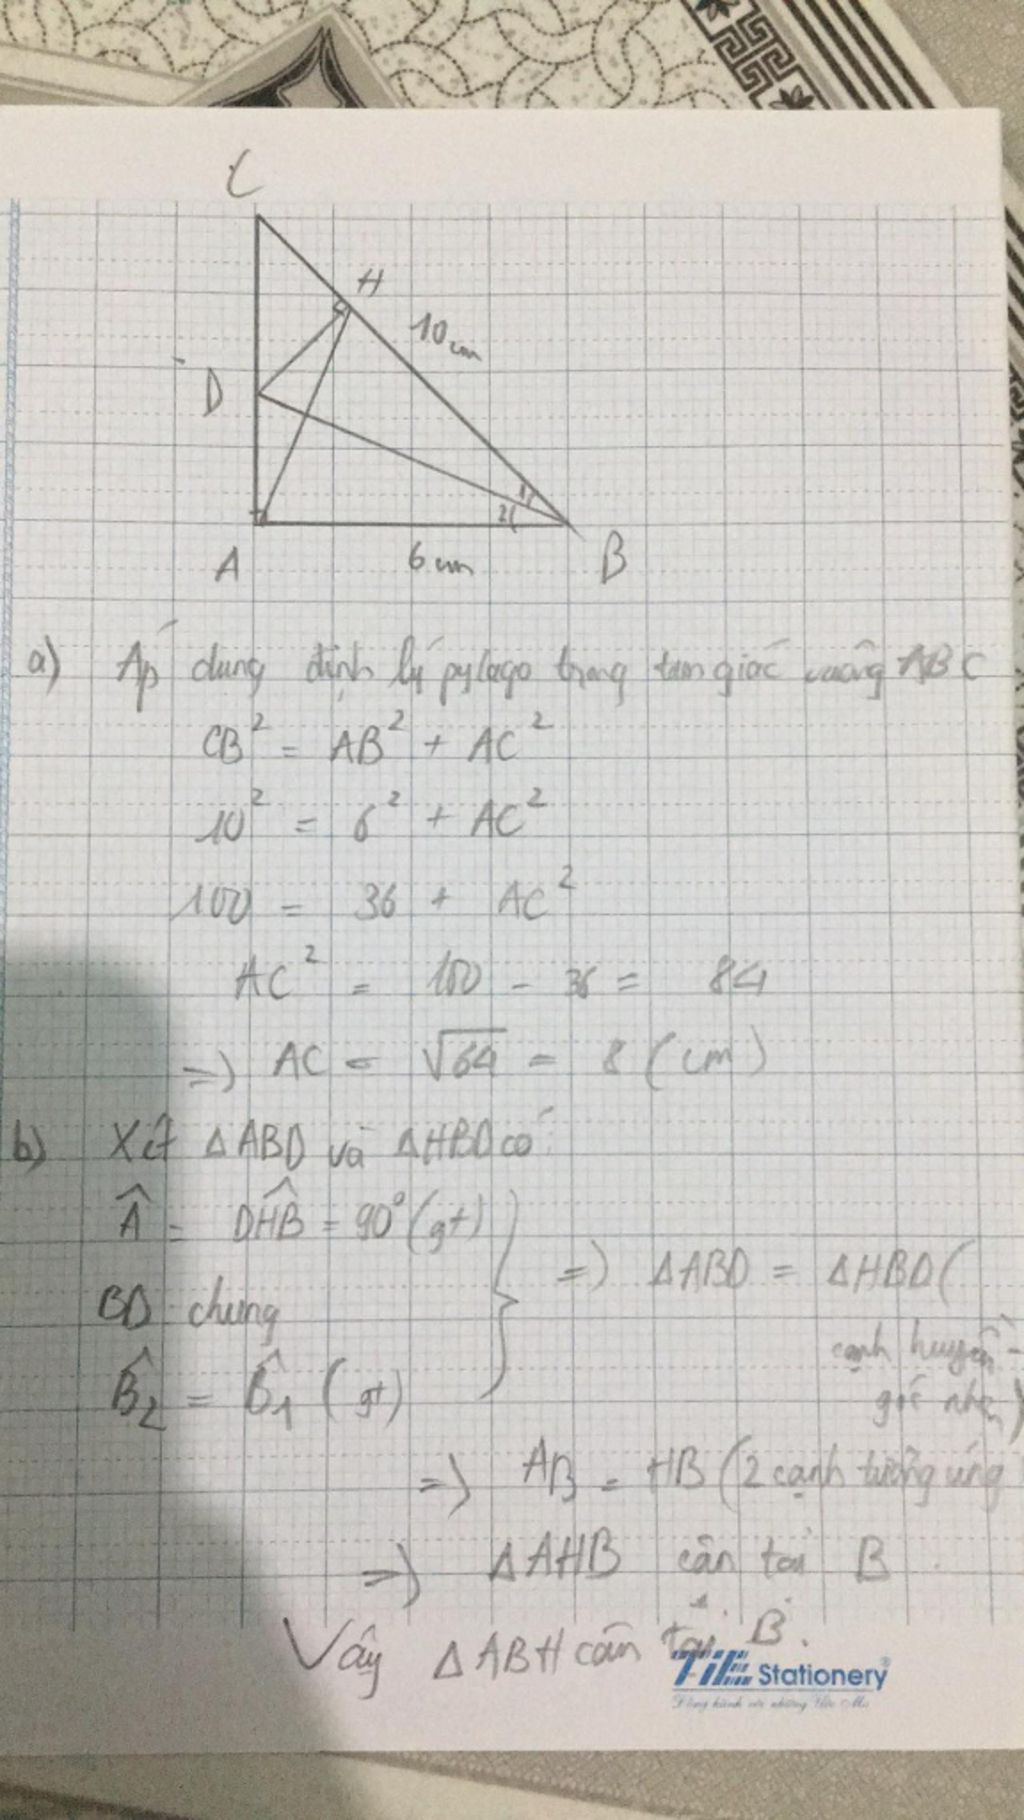 C
H
10cm
D
1
2
A
6cm
B
a) Áp dung định lý pytago trong tam giác vuông ABC
CB² = AB² + AC²
10² = 6² + AC²
100 = 36 + AC²
AC² = 100 - 36 = 84
=> AC = √64 = 8 (cm)
b) Xét ΔABD và ΔHBD có:
Â = DĤB = 90° (gt)
BD chung
B̂₂ = B̂₁ (gt)
=> ΔABD = ΔHBD (
cạnh huyền -
góc nhọn)
=> AB = HB (2 cạnh tương ứng
=> ΔAHB cân tại B
Vậy ΔABH cân tại B.
TiE Stationery®